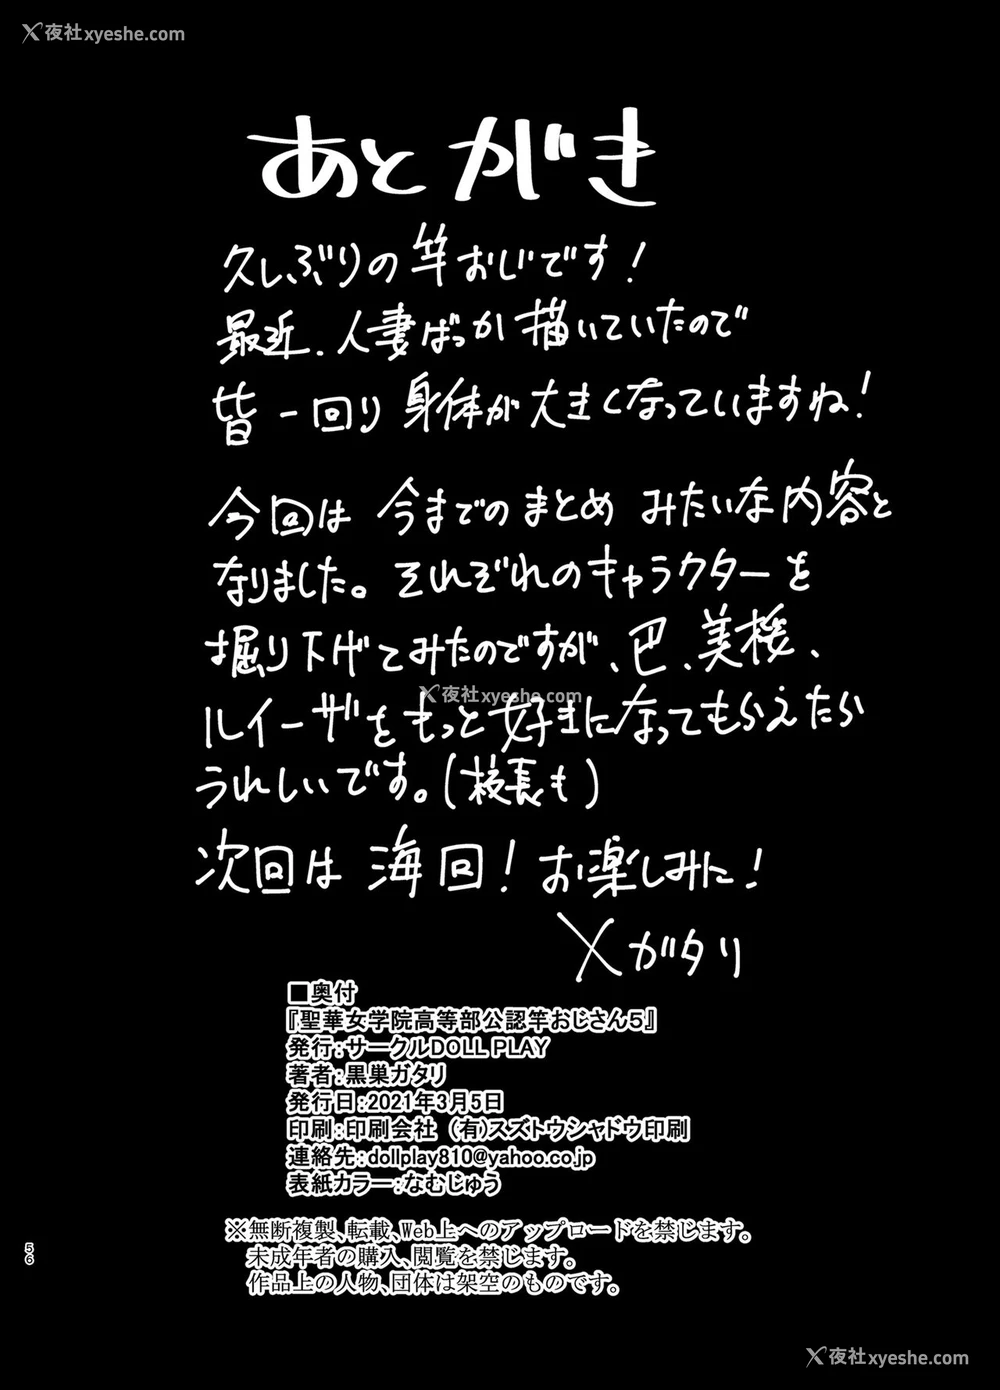 夜社xyeshe.com
あとがき
久しぶりの竿おじです!
最近、人妻ばっか描いていたので
皆一回り身体が大きくなっていますね!
今回は今までのまとめみたいな内容と
なりました。それぞれのキャラクターを
掘り下げてみたのですが、巴、美桜、
夜社xyeshe.com
ルイーザをもっと好きになってもらえたら
うれしいです。(校長も)
次回は海回!お楽しみに!
メガタリ
■奥付
『聖華女学院高等部公認竿おじさん5』
発行:サークルDOLL PLAY
著者:黒巣ガタリ
発行日:2021年3月5日
印刷:印刷会社 (有)スズトウシャドウ印刷
連絡先:dollplay810@yahoo.co.jp
表紙カラー:なむじゅう
※無断複製、転載、Web上へのアップロードを禁じます。
未成年者の購入、閲覧を禁じます。
作品上の人物、団体は架空のものです。
56
夜社xyeshe.com